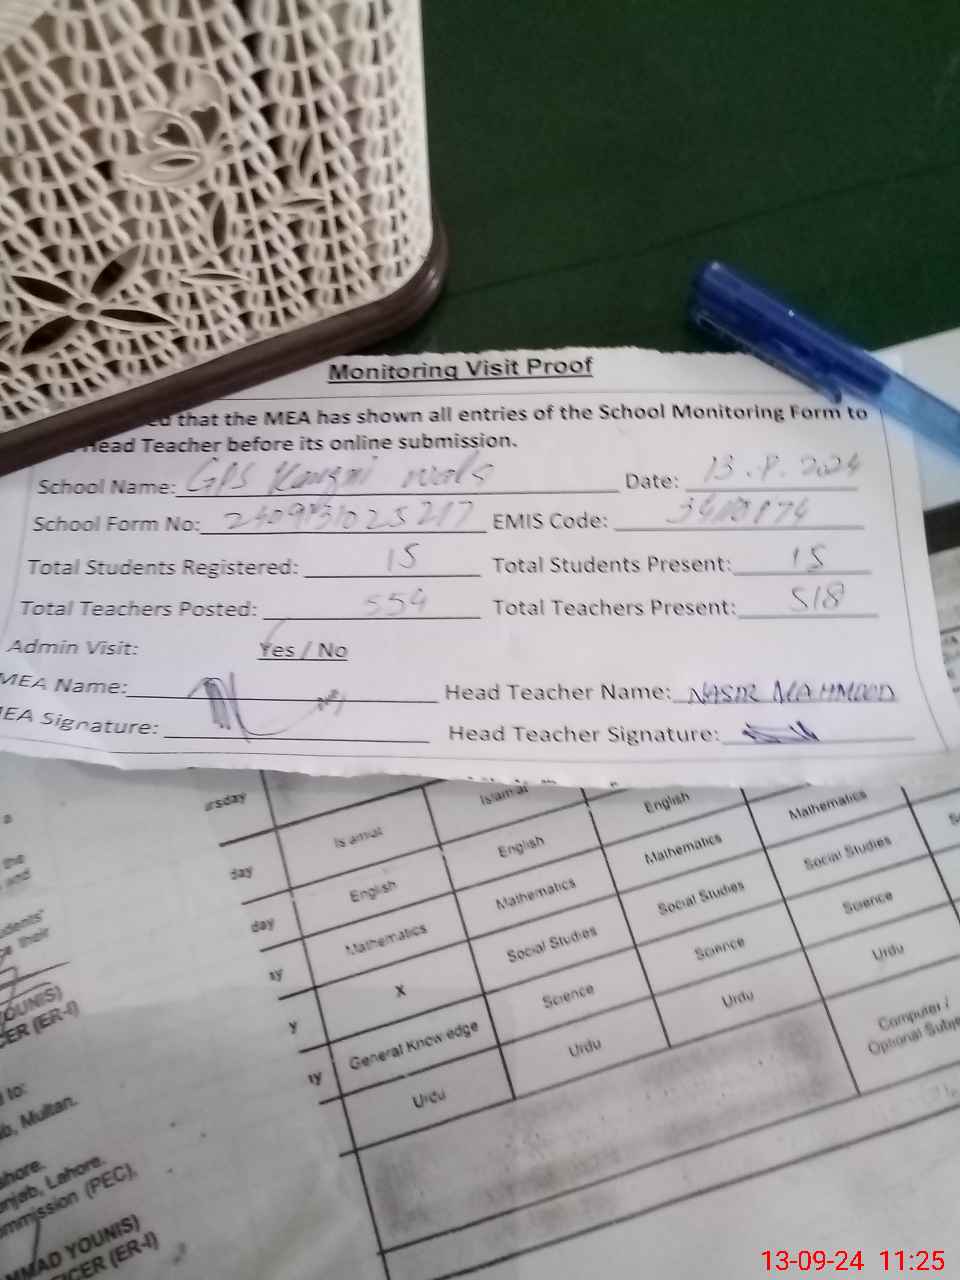 Monitoring Visit Proof
ed that the MEA has shown all entries of the School Monitoring Form to
Head Teacher before its online submission.
School Name: GPS Date: 13.9.2024
School Form No: EMIS Code:
Total Students Registered: 15 Total Students Present: 15
Total Teachers Posted: 554 Total Teachers Present: 518
Admin Visit: Yes / No
MEA Name: Head Teacher Name: NASIR MAHMOOD
MEA Signature: Head Teacher Signature:
rsday Islamiat Islamiat English Mathematics
day English English Mathematics Social Studies
day Mathematics Mathematics Social Studies Science
ay X Social Studies Science Urdu
y General Knowledge Science Urdu Computer /
Optional Subje
ay Urdu Urdu
a
the
and
udents'
their
YOUNIS)
CER (ER-I)
to:
b, Multan.
ahore.
unjab, Lahore.
ommission (PEC).
MMAD YOUNIS)
ICER (ER-I)
13-09-24 11:25